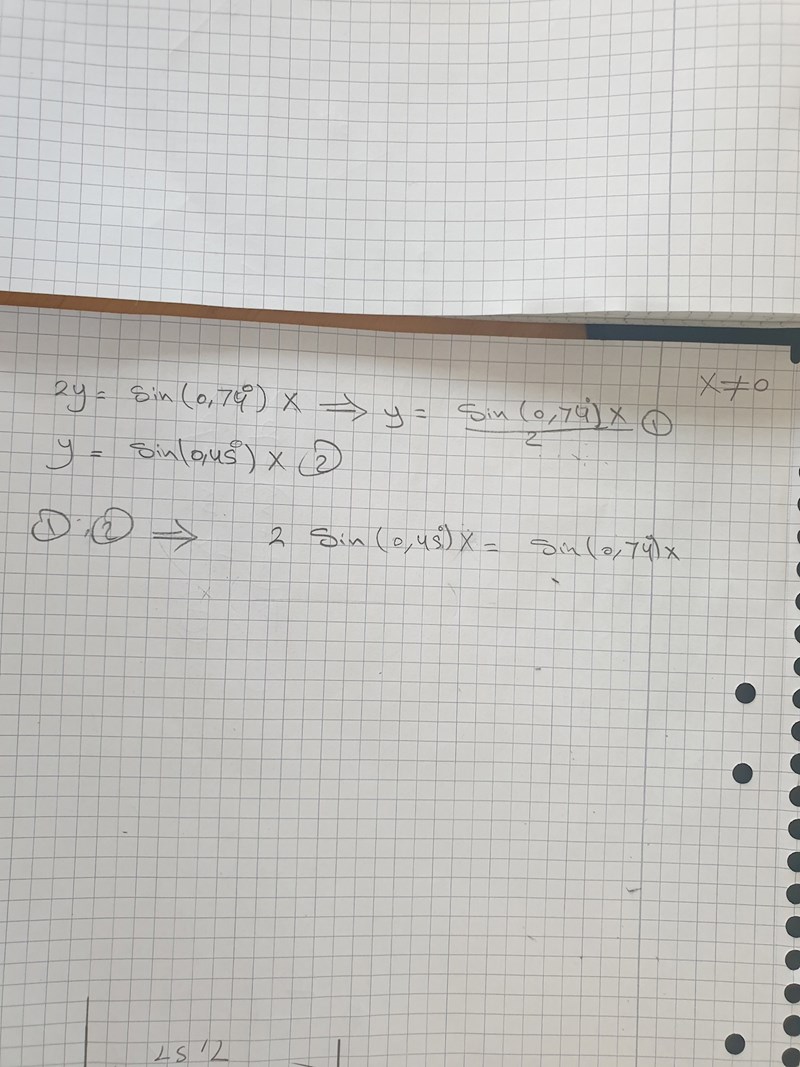 x ≠ 0
2y = sin(0,74°) x ⇒ y = sin(0,74°)x / 2 ①
y = sin(0,45°) x ②
①,② ⇒ 2 sin(0,45°)x = sin(0,74°)x